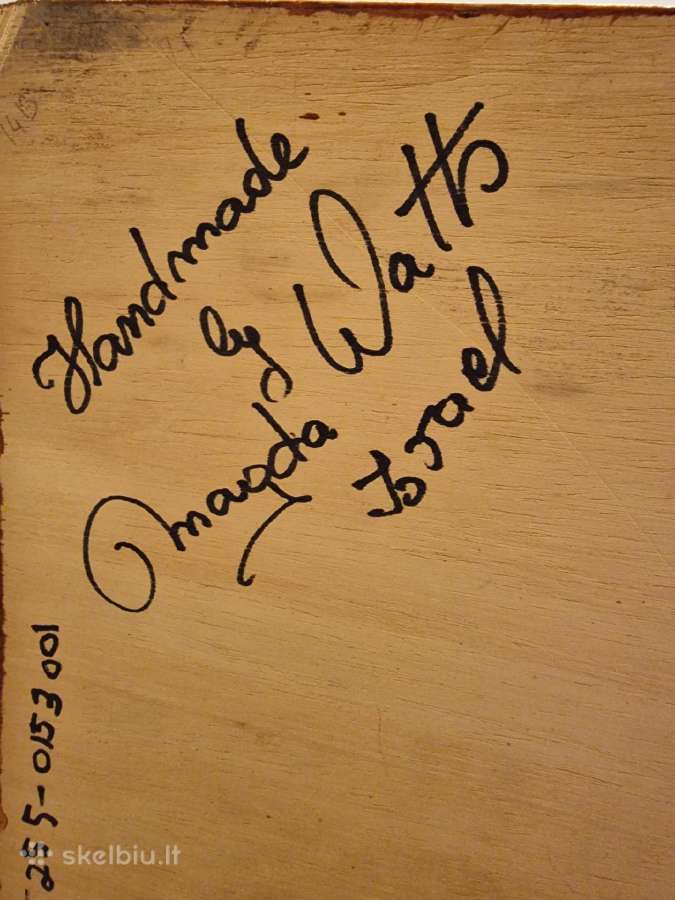 Handmade
by
Magda Watts
Israel
255-0153001
skelbiu.lt